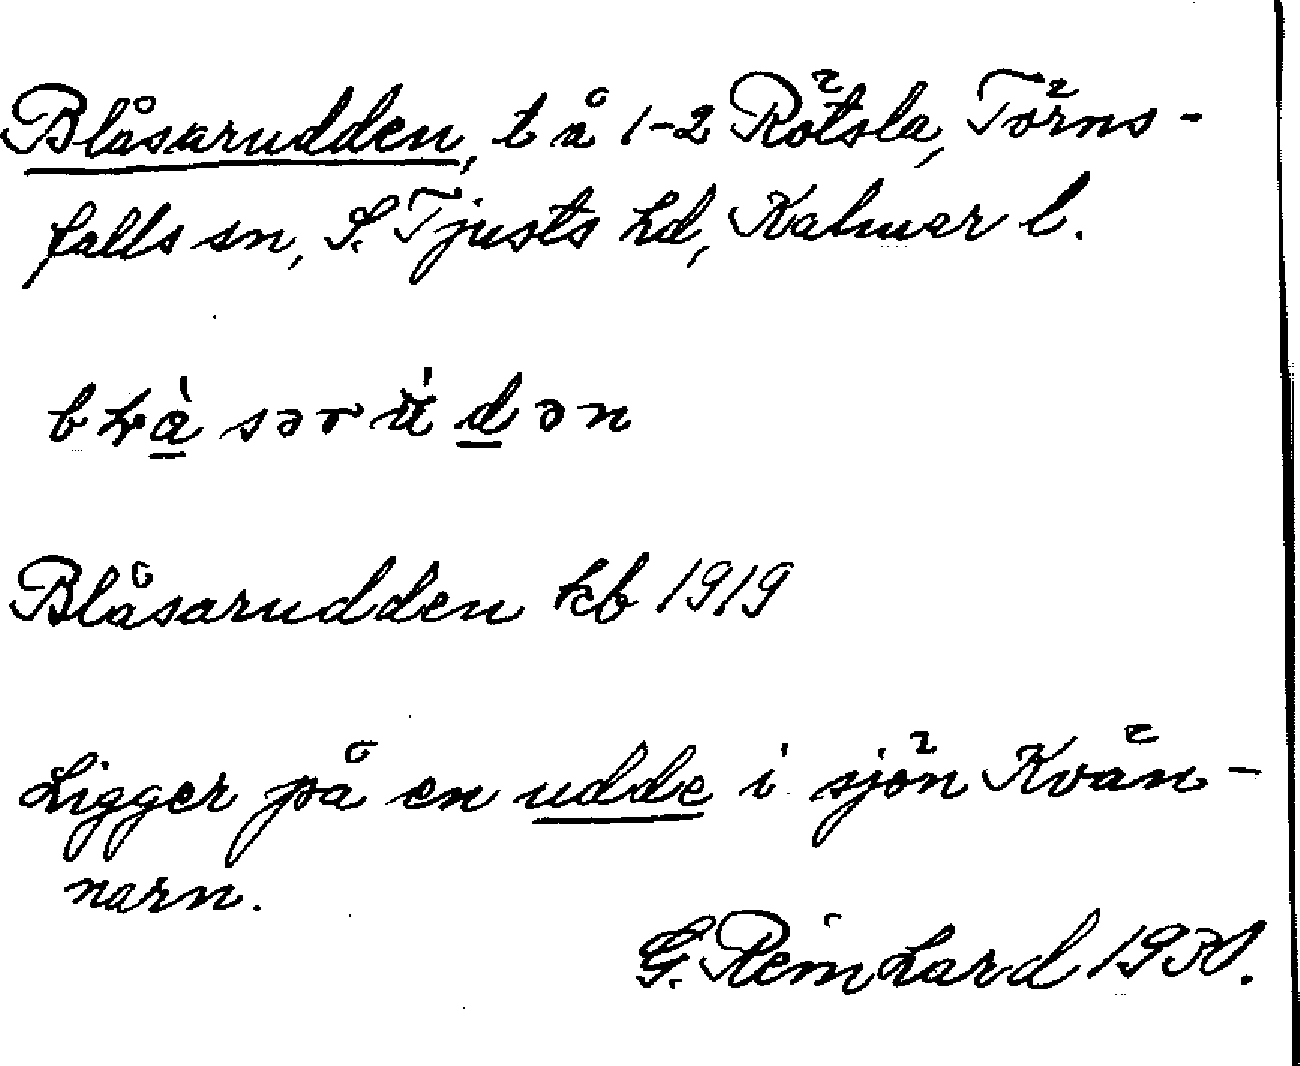 Blåsarudden, t å 1-2 Rötsla, Törns-
falls sn, S. Tjusts hd, Kalmar l.
Blåsarudden kb 1919
Ligger på en udde i sjön Kvän-
narn.
G. Reinhard 1930.